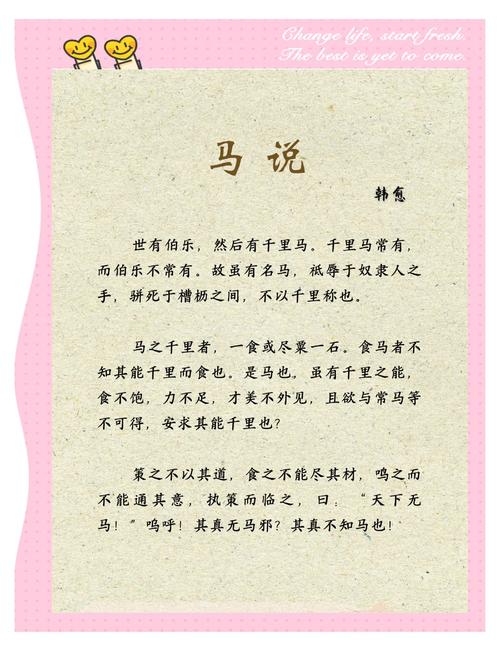 Change life, start fresh.
The best is yet to come.
马说
韩愈
世有伯乐，然后有千里马。千里马常有，
而伯乐不常有。故虽有名马，祗辱于奴隶人之
手，骈死于槽枥之间，不以千里称也。
马之千里者，一食或尽粟一石。食马者不
知其能千里而食也。是马也，虽有千里之能，
食不饱，力不足，才美不外见，且欲与常马等
不可得，安求其能千里也？
策之不以其道，食之不能尽其材，鸣之而
不能通其意，执策而临之，曰：“天下无
马！”呜呼！其真无马邪？其真不知马也！